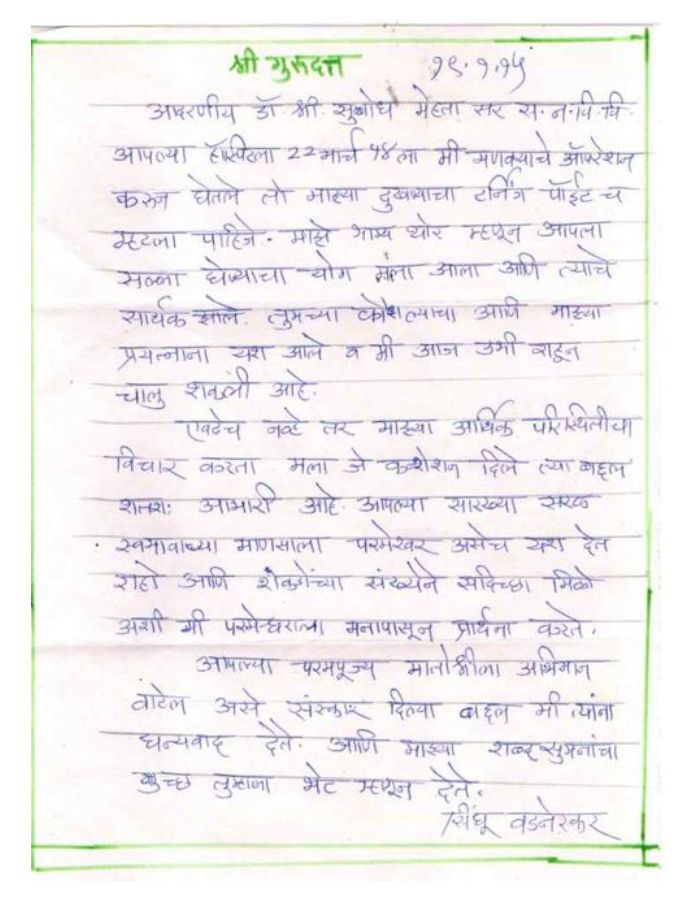 श्री गुरुदत्त १९.१.१५
आदरणीय डॉ. श्री. सुबोध मेहता सर स. न. वि. वि.
आपल्या हॉस्पिटला 22 मार्च १४ ला मी मणक्याचे ऑपरेशन
करुन घेतले तो माझ्या दुखण्याचा टर्निंग पॉईट च
म्हटला पाहिजे. माझे भाग्य थोर म्हणून आपला
सल्ला घेण्याचा योग मला आला आणि त्याचे
सार्थक झाले. तुमच्या कौशल्याचा आणि माझ्या
प्रयत्नाना यश आले व मी आज उभी राहून
चालु शकली आहे.
एवढेच नव्हे तर माझ्या आर्थिक परिस्थितीचा
विचार करता मला जे कन्शेशन दिले त्या बद्दल
शतशः आभारी आहे. आपल्या सारख्या सरळ
स्वभावाच्या माणसाला परमेश्वर असेच यश देत
राहो आणि शेकडोंच्या संख्येने सदिच्छा मिळो
अशी मी परमेश्वराला मनापासून प्रार्थना करते.
आपल्या परमपूज्य मातोश्रीला अभिमान
वाटेल असे संस्कार दिल्या बद्दल मी त्यांना
धन्यवाद देते. आणि माझ्या शब्द सुमनांचा
गुच्छ तुम्हाला भेट म्हणून देते.
सिंधू वडनेरकर